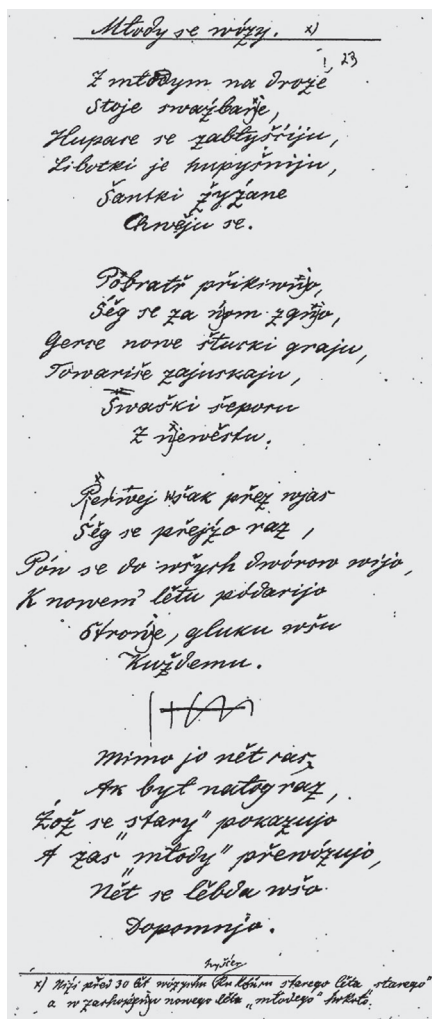 Młody se wózy. x)
1, 23
Z młodym na droze
Stoje swaźbarje,
Hupace se zabłyšćiju,
Libotki je hupyšniju,
Šantki žyźane
Chwěju se.
Pobratř přikiwnjo,
Sěg se za njom zginjo,
Gerce nowe štucki graju,
Towariše zajuskaju,
Swaški šeporu
Z njewěstu.
Perwej wšak přez wjas
Sěg se pśejźo raz,
Pón se do wšych dwórow wijo,
K nowem' lětu pódarijo
Stronje, gluku wšu
Kuždemu.
Mimo jo nět cas,
Ak był natograz,
Źož se "stary" pokazujo
A zas "młody" přewózujo,
Nět se lěbda wšo
Dopomnjo.
x) Niži před 30 lět wózychu ku kóńcu starego lěta "starego"
a w zachopjenju nowego lěta "młodego"